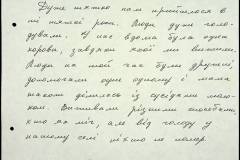 Дуже тяжко нам прийшлося в
ті тяжкі роки. Люди дуже голо-
дували. У нас вдома була одна
корова, завдяки якій ми вижили.
Люди на той час були дружні,
допомагали один одному і мама
також ділилась із сусідами моло-
ком. Виживали різними способами,
хто як міг, але від голоду у
нашому селі ніхто не помер.